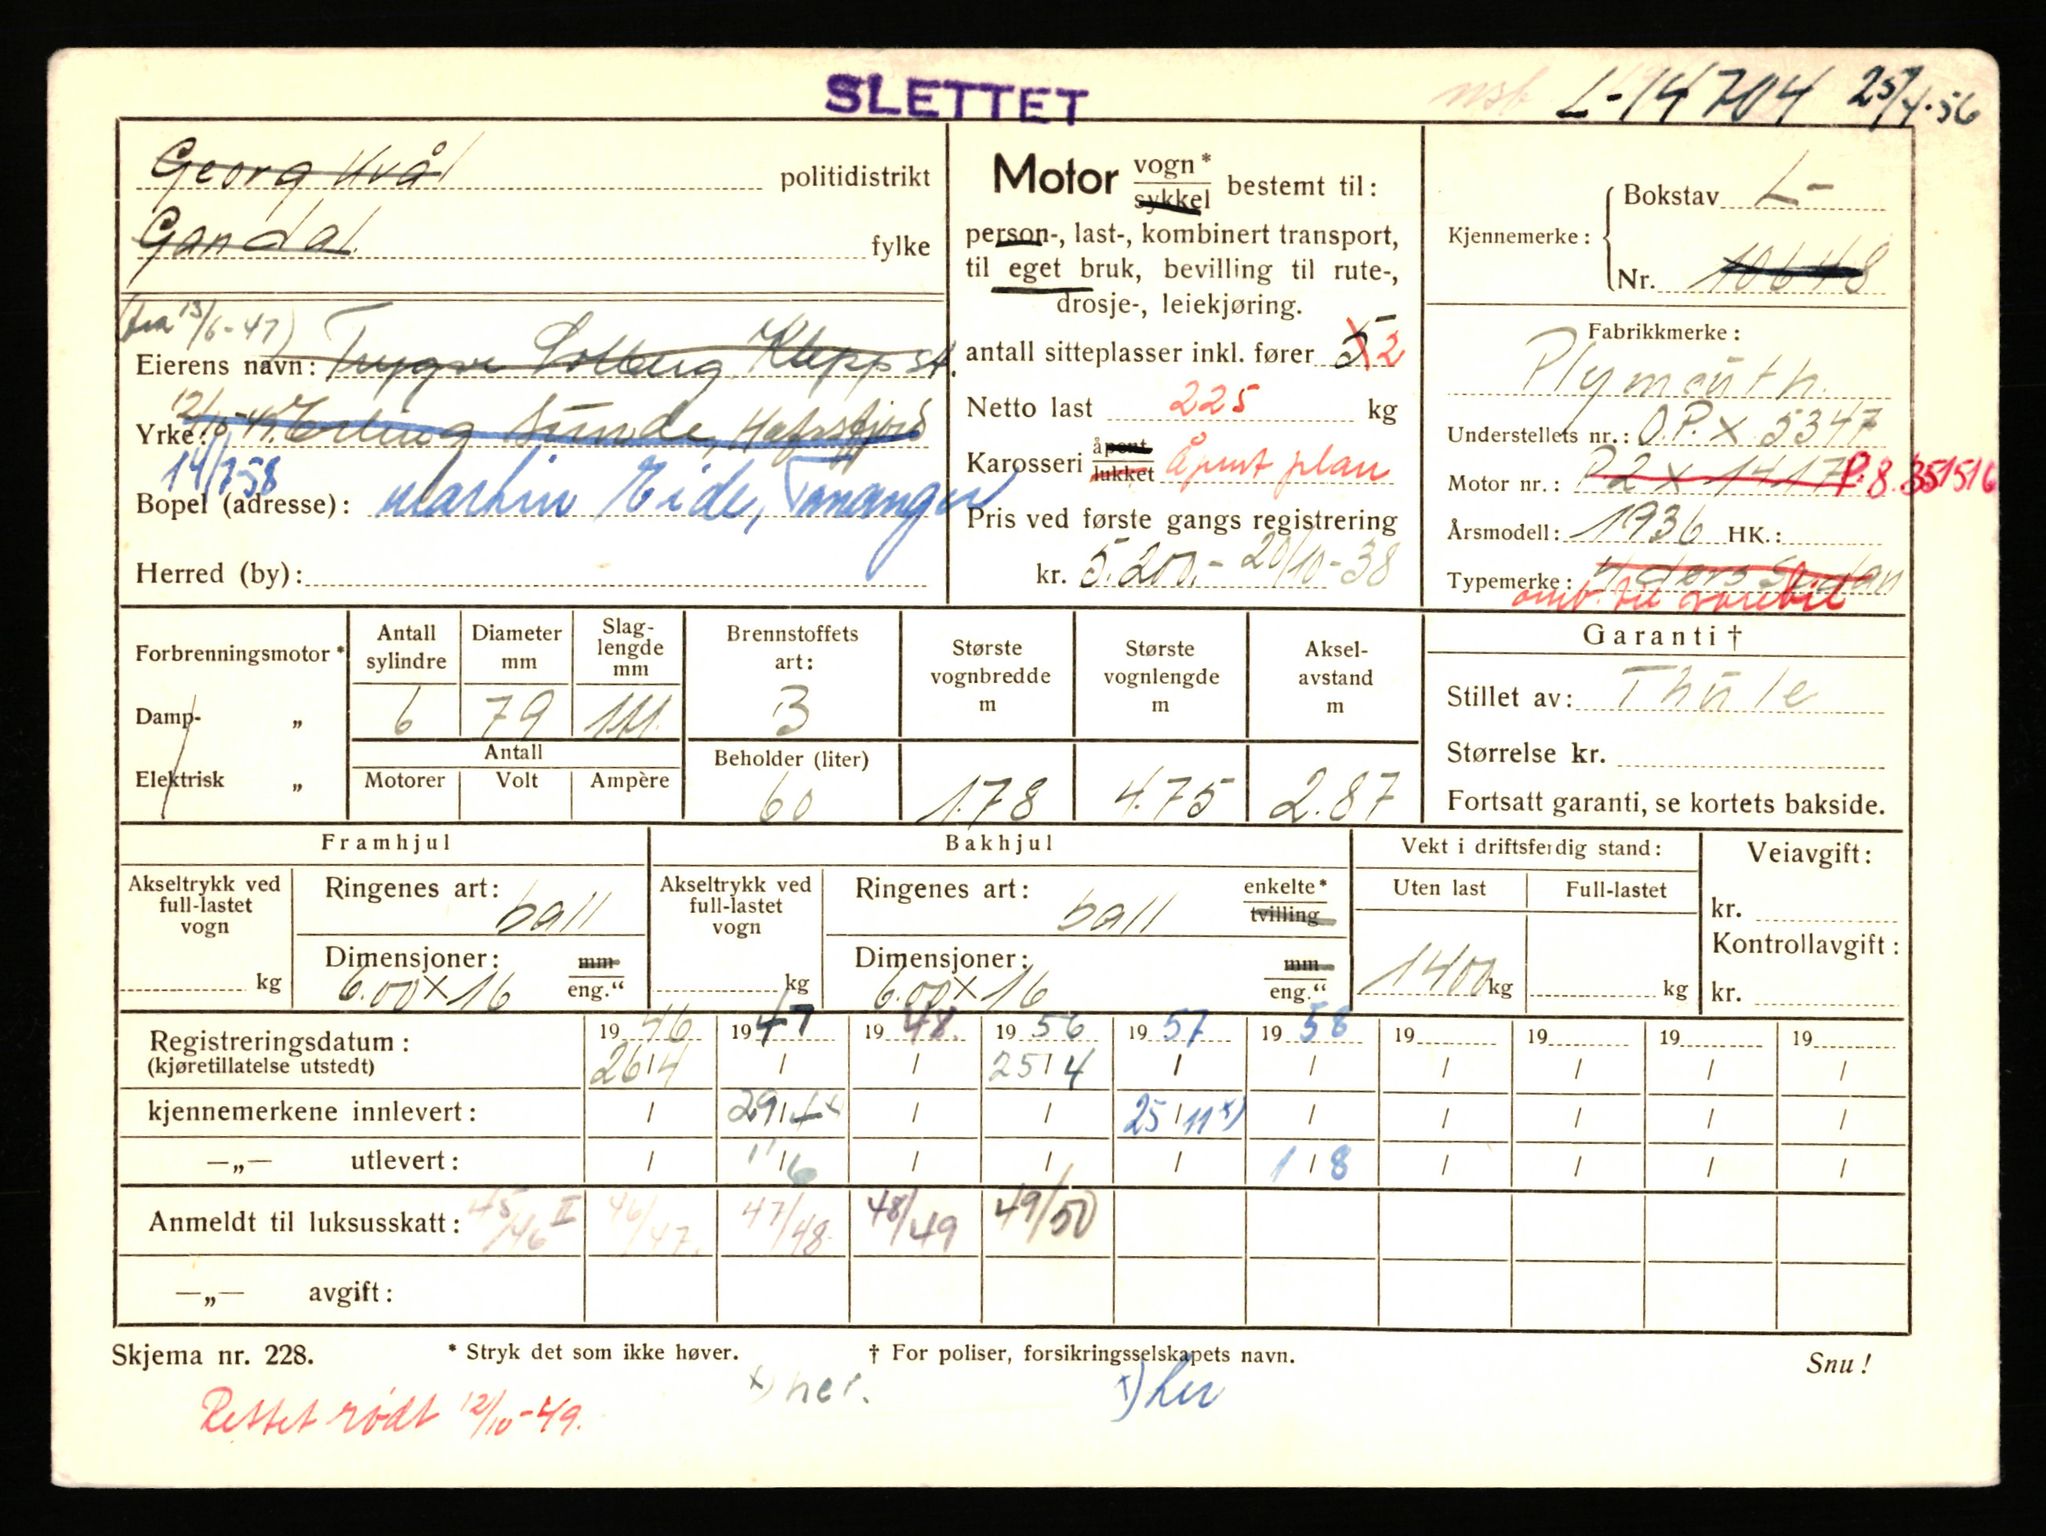 SLETTET
L-14704 25/4-56
Georg Kvål politidistrikt
Gandal. fylke
(fra 13/6-47)
Eierens navn: Trygve Solberg, Klepp st.
12/10-49. Erling Sunde, Hafrsfjord
Yrke:
14/7-58
Bopel (adresse): Martin Eide, Tananger
Herred (by):
Motor vogn* sykkel bestemt til:
person-, last-, kombinert transport,
til eget bruk, bevilling til rute-,
drosje-, leiekjøring.
antall sitteplasser inkl. fører 5 2
Netto last 225 kg
Karosseri åpent lukket Åpent plan
Pris ved første gangs registrering
kr. 5.200.- 20/10-38
Kjennemerke:
Bokstav L-
Nr. 10648
Fabrikkmerke:
Plymouth.
Understellets nr.: O.P.X 5347
Motor nr.: P2 X 1417 P.8.351516
Årsmodell: 1936 HK.:
Typemerke: 4 dørs Sedan
omb. til varebil
Forbrenningsmotor*
Damp- „
Elektrisk „
Antall sylindre
6
Diameter mm
79
Slag-lengde mm
111.
Antall
Motorer Volt Ampère
Brennstoffets art:
B
Beholder (liter)
60
Største vognbredde m
1.78
Største vognlengde m
4.75
Aksel-avstand m
2.87
Garanti†
Stillet av: Thule
Størrelse kr.
Fortsatt garanti, se kortets bakside.
Framhjul
Akseltrykk ved full-lastet vogn
kg
Ringenes art: ball
Dimensjoner: mm eng.“
6.00 x 16
Bakhjul
Akseltrykk ved full-lastet vogn
kg
Ringenes art: ball enkelte* tvilling
Dimensjoner: mm eng.“
6.00 x 16
Vekt i driftsferdig stand:
Uten last Full-lastet
1400 kg kg
Veiavgift:
kr.
Kontrollavgift:
kr.
Registreringsdatum: 1946 1947 1948. 1956 1957 1958 19 19 19 19
(kjøretillatelse utstedt) 26/4 / / 25/4 / / / / / /
kjennemerkene innlevert: / 29/4 x) / / 25/11 x) / / / / /
—„— utlevert: / 11/6 / / / 1/8 / / / /
Anmeldt til luksusskatt: 45/46 II 46/47. 47/48. 48/49 49/50
—„— avgift:
Skjema nr. 228. * Stryk det som ikke høver. † For poliser, forsikringsselskapets navn. Snu!
x) her. x) her
Rettet rødt 12/10-49.